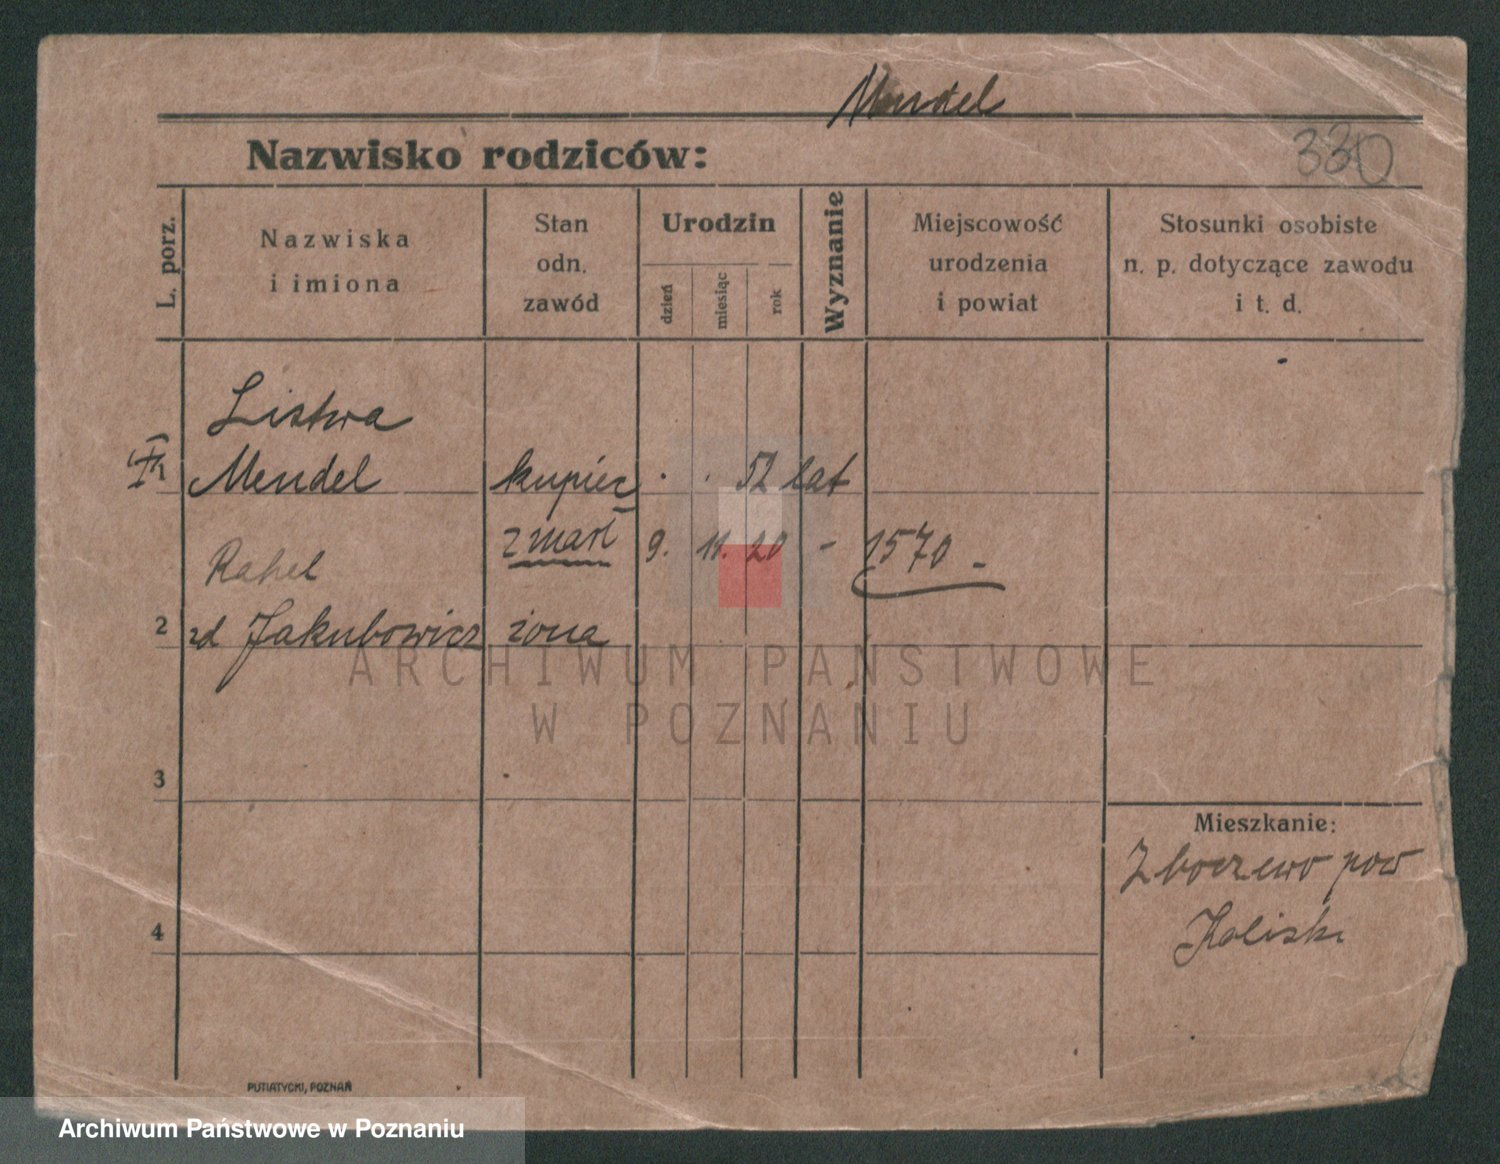 Mendel
Nazwisko rodziców:
330
L. porz.
Nazwiska
i imiona
Stan
odn.
zawód
Urodzin
dzień
miesiąc
rok
Wyznanie
Miejscowość
urodzenia
i powiat
Stosunki osobiste
n. p. dotyczące zawodu
i t. d.
Listwa
Mendel kupiec . . 52 lat
zmarł 9. 11. 20 - 1570 -
Rahel
2 zd Jakubowicz żona
ARCHIWUM PAŃSTWOWE
W POZNANIU
3
Mieszkanie:
Zboczewo pow
Kalisk
4
PUTIATYCKI, POZNAŃ
Archiwum Państwowe w Poznaniu